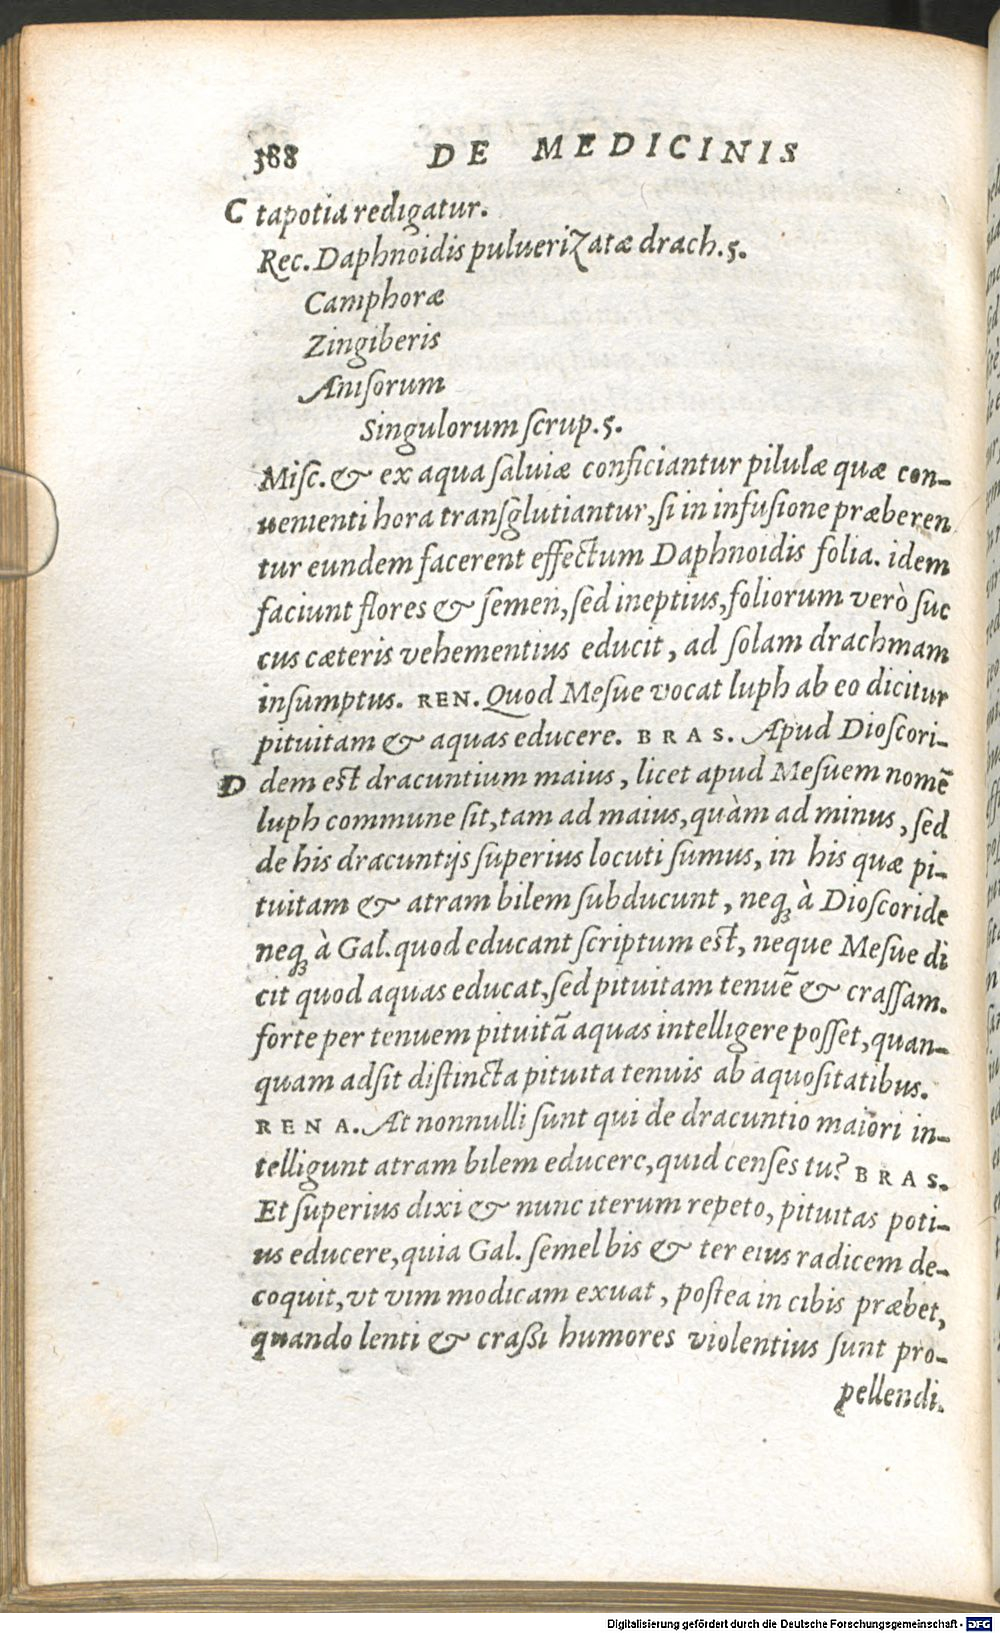 388 DE MEDICINIS
C tapotia redigatur.
Rec. Daphnoidis pulueriZatæ drach. 5.
Camphoræ
Zingiberis
Aniſorum
Singulorum ſcrup. 5.
Miſc. & ex aqua ſaluiæ conficiantur pilulæ quæ con-
uenienti hora tranſglutiantur, ſi in infuſione præberen
tur eundem facerent effectum Daphnoidis folia. idem
faciunt flores & ſemen, ſed ineptius, foliorum verò ſuc
cus cæteris vehementius educit, ad ſolam drachmam
inſumptus. REN. Quod Meſue vocat luph ab eo dicitur
pituitam & aquas educere. BRAS. Apud Dioſcori-
D dem eſt dracuntium maius, licet apud Meſuem nomē
luph commune ſit, tam ad maius, quàm ad minus, ſed
de his dracuntijs ſuperius locuti ſumus, in his quæ pi-
tuitam & atram bilem ſubducunt, neqꝫ à Dioſcoride
neqꝫ à Gal. quod educant ſcriptum eſt, neque Meſue di
cit quod aquas educat, ſed pituitam tenuē & craſſam.
forte per tenuem pituitā aquas intelligere poſſet, quan-
quam adſit diſtincta pituita tenuis ab aquoſitatibus.
RENA. At nonnulli ſunt qui de dracuntio maiori in-
telligunt atram bilem educere, quid cenſes tu? BRAS.
Et ſuperius dixi & nunc iterum repeto, pituitas poti-
us educere, quia Gal. ſemel bis & ter eius radicem de-
coquit, vt vim modicam exuat, poſtea in cibis præbet,
quando lenti & craßi humores violentius ſunt pro-
pellendi.
Digitalisierung gefördert durch die Deutsche Forschungsgemeinschaft - DFG